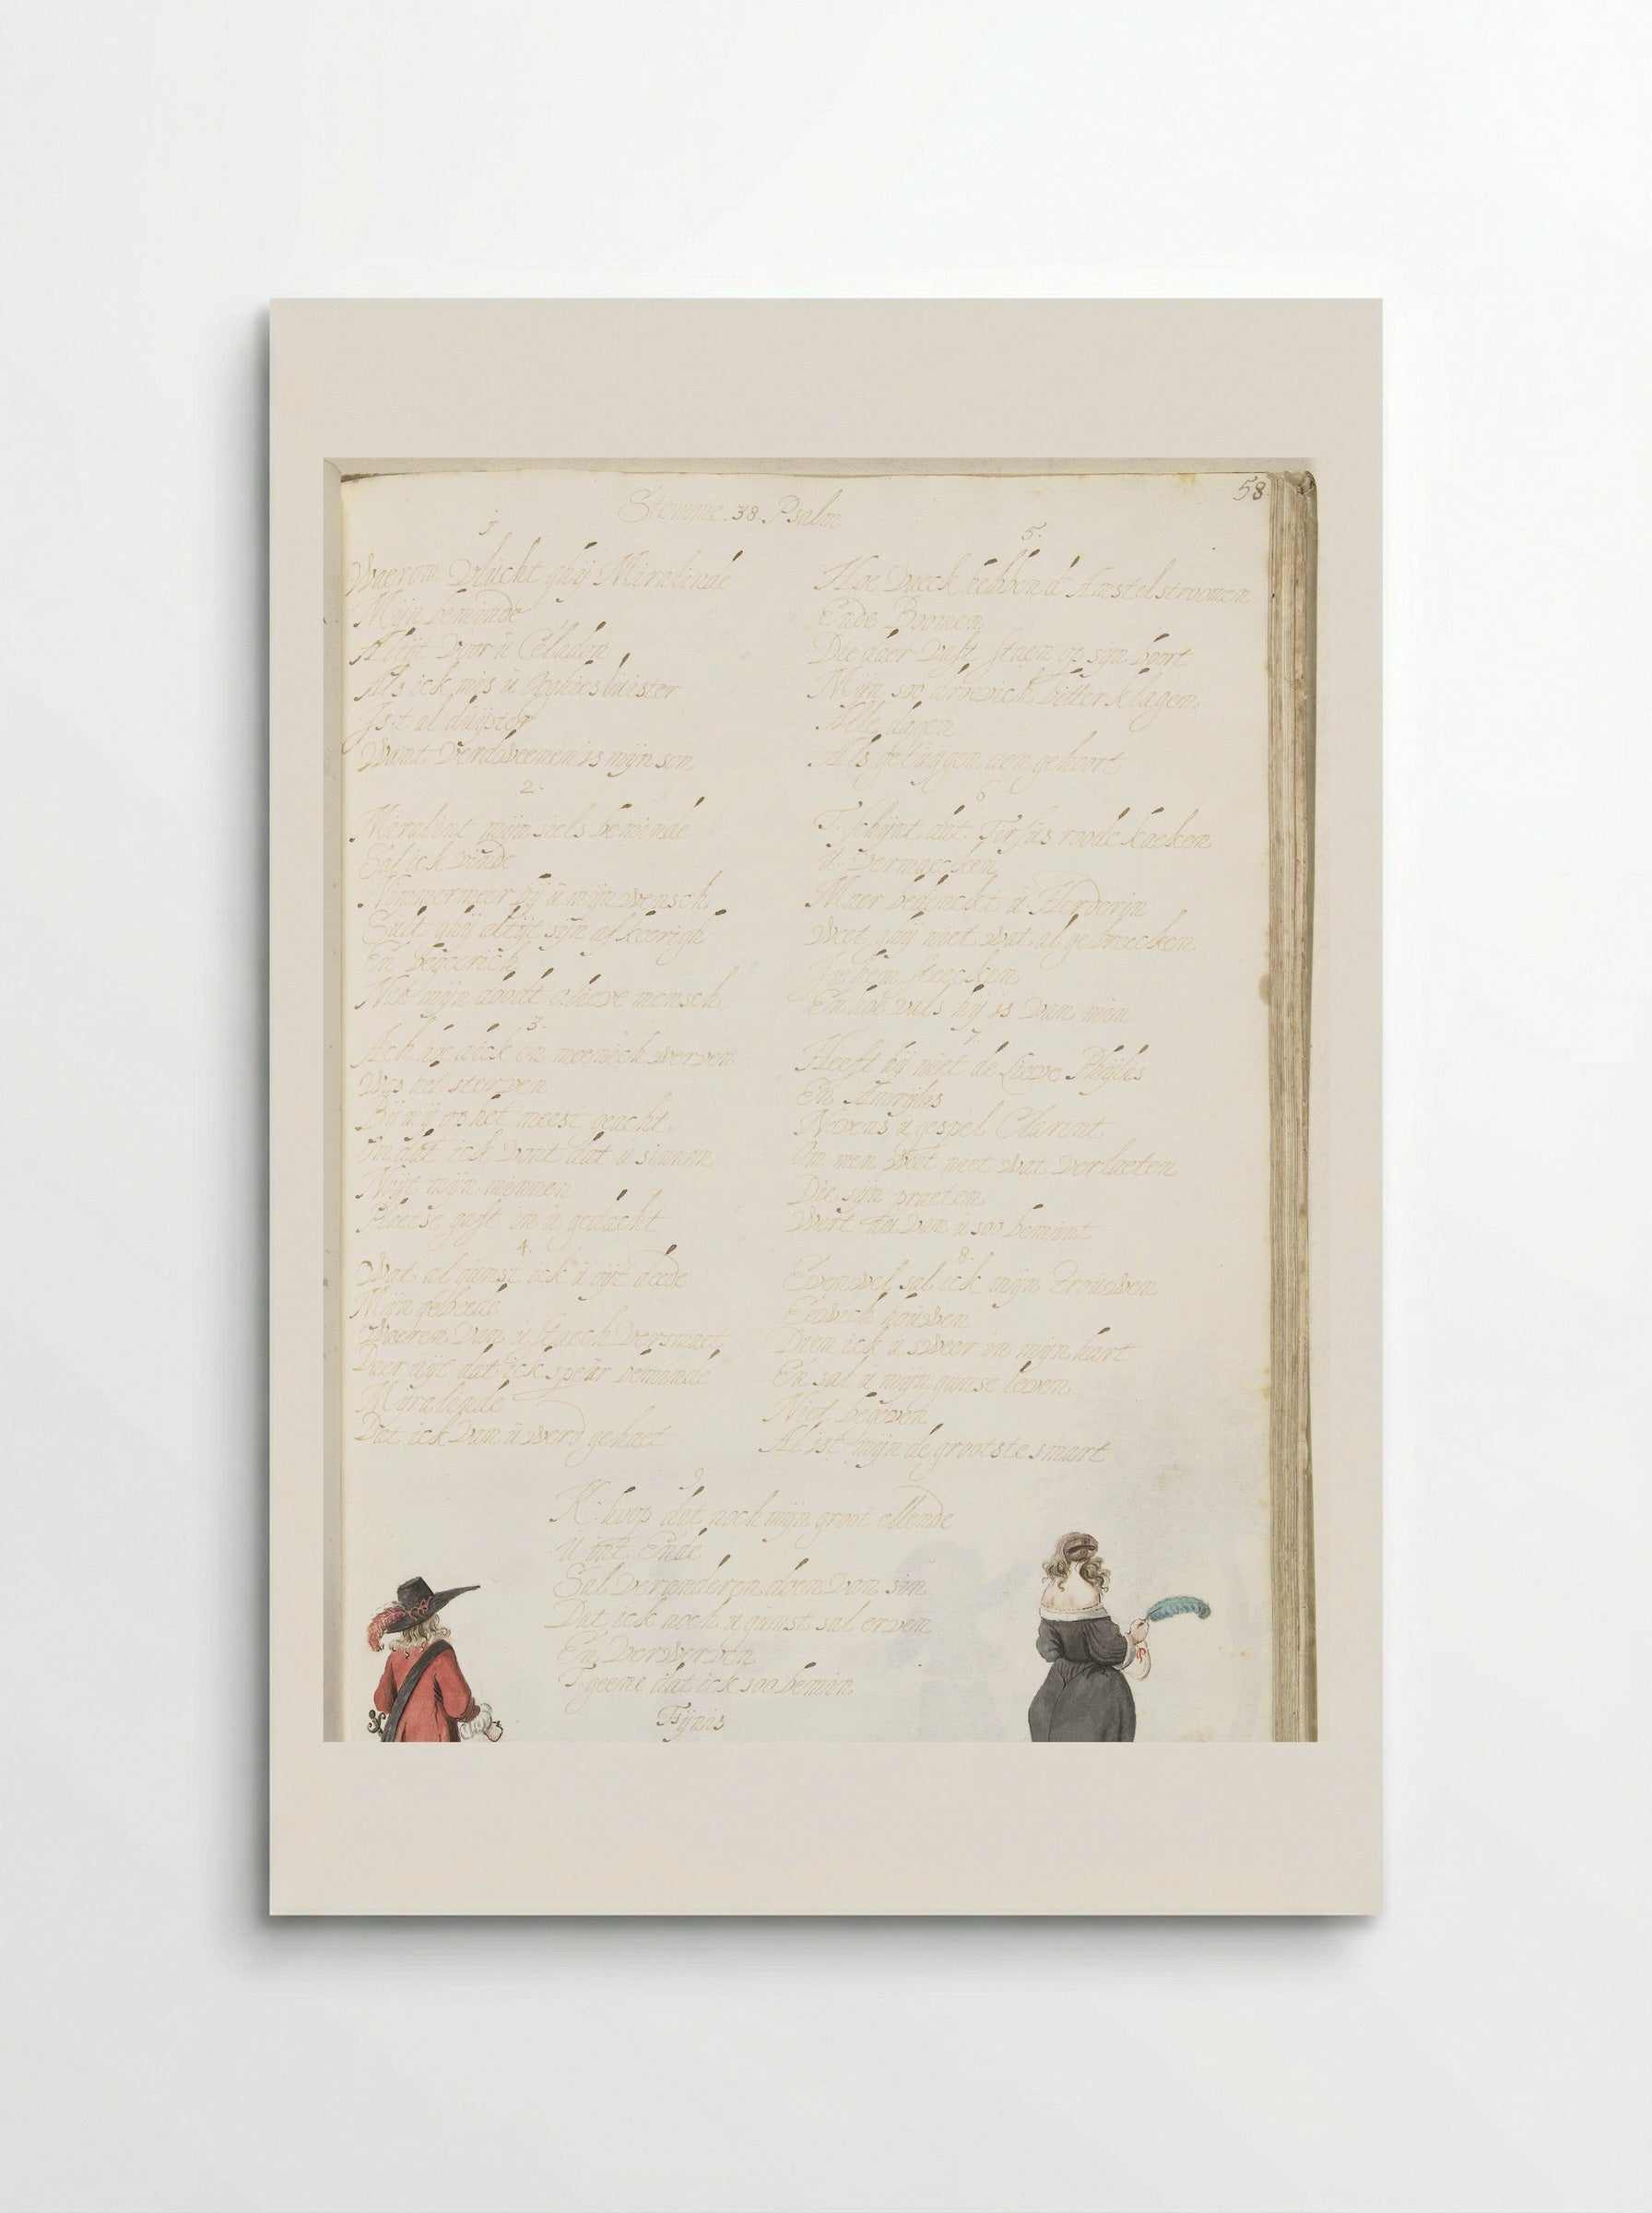 58.
Stemme. 38. Psalm
1
Waerom Vlucht ghij Miralinde
Mijn beminde
Altijt Voor u Celadon
Als ick mis u Ooghies luister
Is:t al duijster
Want Verdweenen is mijn son
2.
Miralint mijn siels beminde
Sal ick vinde
Nimmermeer bij u mijn wensch
Sult ghij altijt sijn afkeerigh
En begeerich
Nae mijn doodt o lieve mensch
3.
Ach hoe dick en meenich werven
Was het sterven
Bij mij op het meest geacht
Om dat ick vont dat u sinnen
Noijt mijn minnen
Plaetse gaft in u gedacht
4.
Wat al gunst ick u oijt deede
Mijn gebeede
Waeren Van u staech Versmaet
Daer uijt dat ick speur beminde
Miralinde
Dat ick Van u werd gehaet
5.
Hoe Dueck hebben d' Amstelstroomen
Ende Boomen
Die daer Vast staen op sijn boort
Mijn soo droevich bitter klagen
Alle dagen
Als getuijgen aen gehoort
6
T. schijnt dat Tirsus roode kaeken
u. vermaecken
Maer bedenckt u Herderin
Weet ghij niet wat al gebreecken
In hem steecken
En hoe vals hij is van min
7.
Heeft hij niet de Lieve Phijlis
En Amrijlis
Nevens u gespel Clarint
Om men weet niet wat verlaeten
Die sijn praeten
Wert van u soo bemint
8.
Evenwel sal ick mijn trouwen
Eewich houwen
Dien ick u sweer in mijn hart
En sal u mijn ganse leven
Niet begeven
Al ist mijn de grootste smart
9
K: hoop dat noch mijn groot ellende
u int Ende
Sal veranderen doen van sin
Dat ick noch u gunst sal erven
En Verwerven
T geene dat ick soo bemin
Fijnis